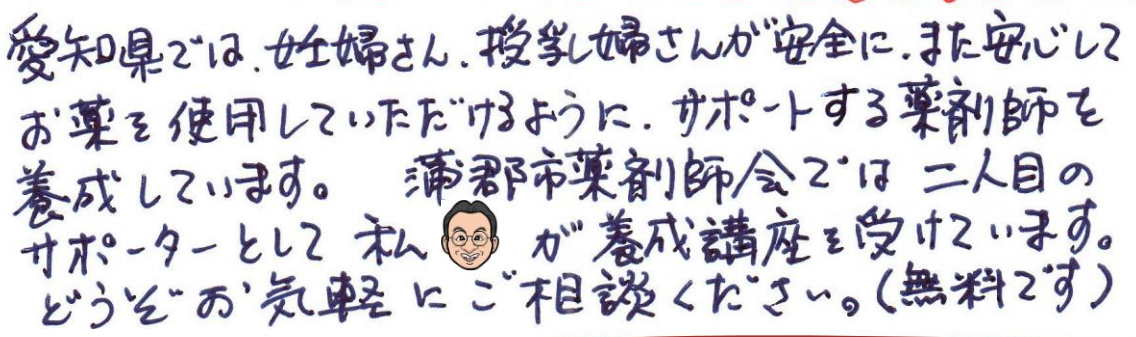 愛知県では、妊婦さん、授乳婦さんが安全に、また安心して
お薬を使用していただけるように、サポートする薬剤師を
養成しています。 蒲郡市薬剤師会では 二人目の
サポーターとして 私 が 養成講座を受けています。
どうぞお気軽にご相談ください。(無料です)